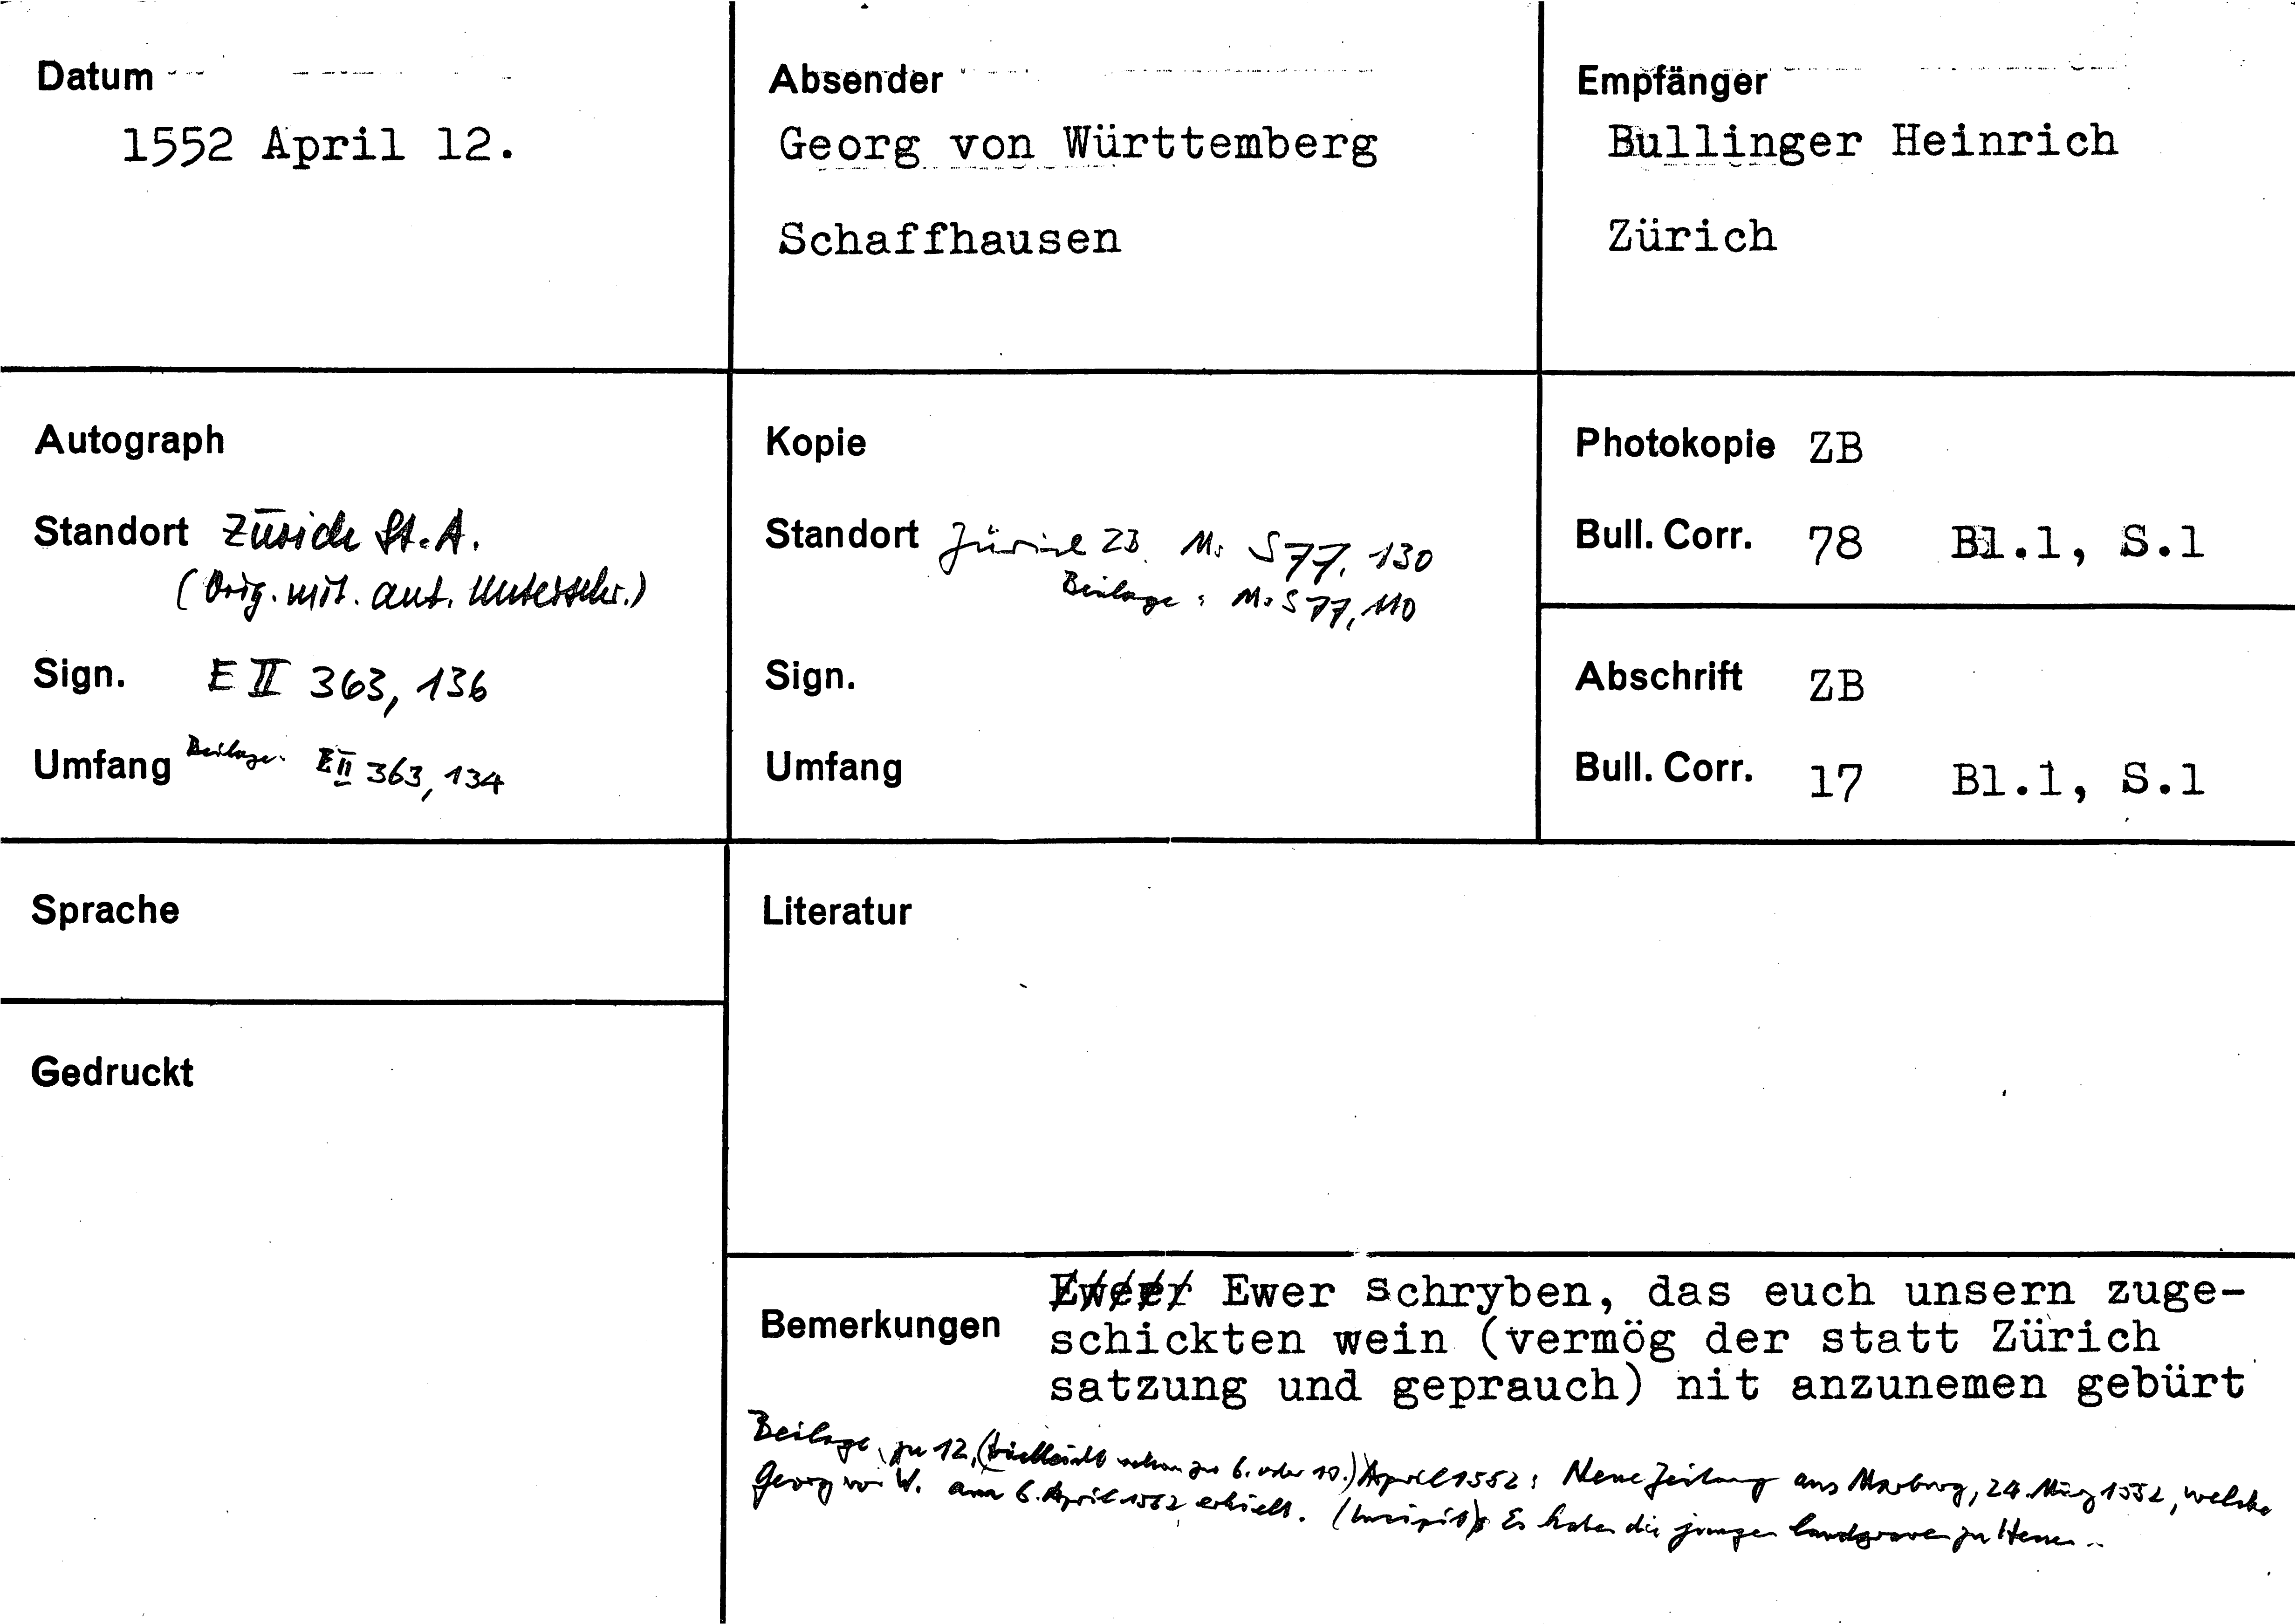 Datum
1552 April 12.
Absender
Georg von Württemberg
Schaffhausen
Empfänger
Bullinger Heinrich
Zürich
Autograph
Standort Zürich St.A.
(Orig. mit. aut. Unterschr.)
Sign. E II 363, 136
Umfang Beilage: E II 363, 134
Kopie
Standort Zürich ZB Ms S 77, 130
Beilage: Ms S 77, 110
Sign.
Umfang
Photokopie ZB
Bull. Corr. 78 Bl.1, S.1
Abschrift ZB
Bull. Corr. 17 Bl.1, S.1
Sprache
Literatur
Gedruckt
Bemerkungen
Ewer schryben, das euch unsern zuge-
schickten wein (vermög der statt Zürich
satzung und geprauch) nit anzunemen gebürt
Beilage zu 12. (vielleicht schon zu 6. oder 10.) April 1552: Neue Zeitung aus Marburg, 24. März 1552, welche
Georg von W. am 6. April 1552 erhielt. (Incipit): Es haben die jungen landgraven zu Hessen..